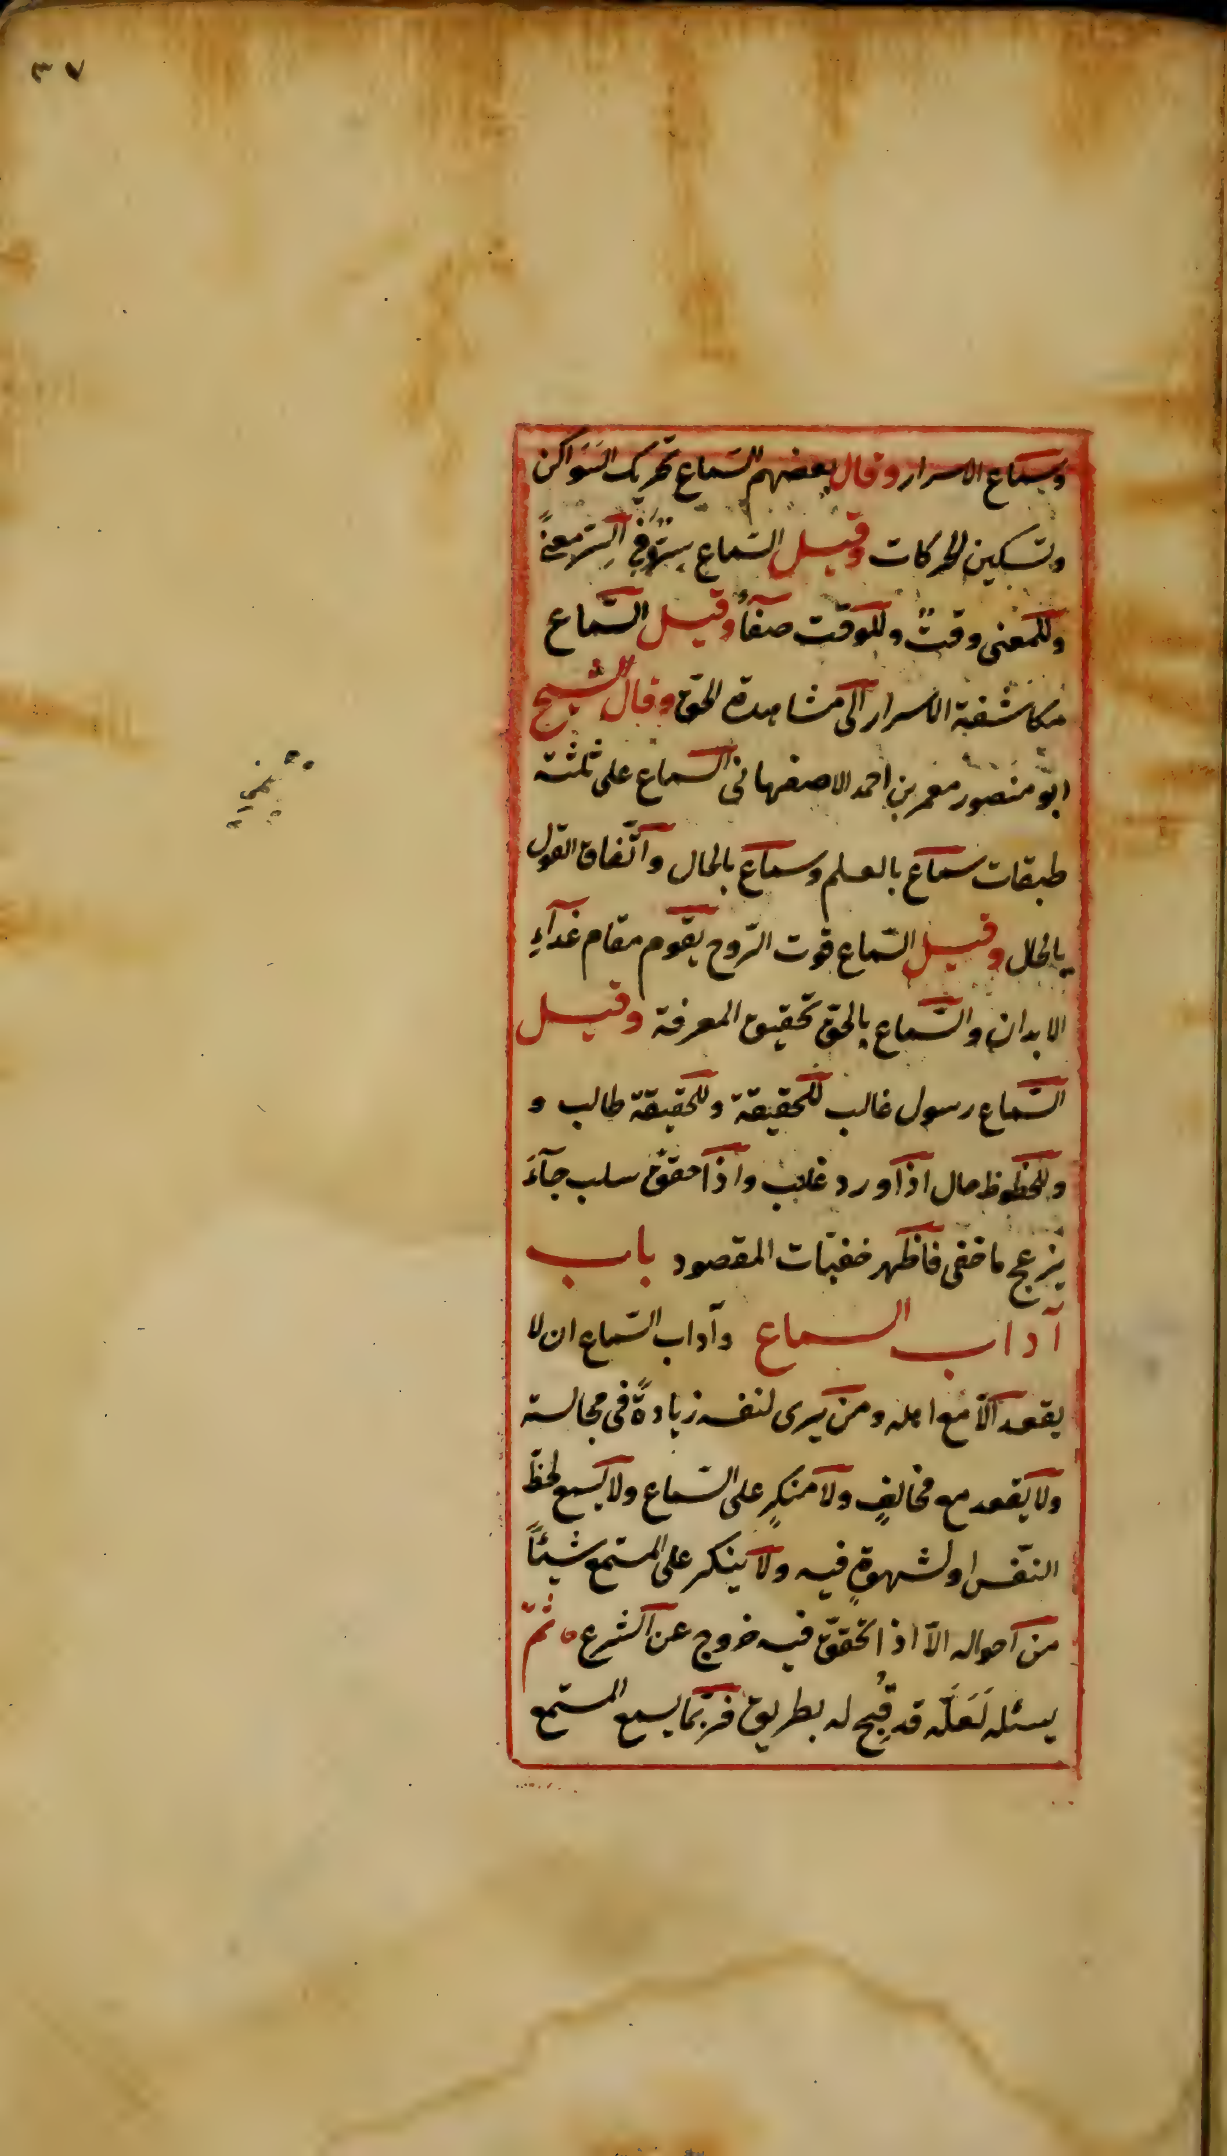 ٣٧
وسماع الاسرار وقال بعضهم السَماع تحريك السَوَاكن
وتسكين الحركات وقيل السَماع سِرٌّ وفي السِرّ معنىً
وللمعنى وقتٌ وللوقت صفآءٌ وقيل السَّماع
مكاشفة الاسرار الى مشاهدة الحق وقال الشيخ
ابو منصور معمر بن احمد الاصفهانى السماع على ثلثة
طبقات سماع بالعلم وسماع بالحال واتّفاق القول
بالحال وقيل السّماع قوت الرّوح يقوم مقام غدآءِ
الابدان والسَّماع بالحقّ تحقيق المعرفة وقيل
السَّماع رسول غالب للحقيقة وللحقيقة طالب و
وللحظوظ حال اذا ورد غلب واذا حقق سلب جآءَ
يزعج ما خفى فاظهر خفيّات المقصود باب
آداب السماع وآداب السّماع ان لا
يقعد الّا مع اهله ومن يرى لنفسه زيادةً فى مجالسته
ولا يقعد مع مخالفٍ ولا منكرٍ على السّماع ولا يسمع لحظّ
النّفس او لشهوةٍ فيه ولا ينكر على المستمع شيئاً
من احواله الّا اذا تحقق فيه خروج عن الشرع ثمّ
يسئله لَعَلّه قد فُتِح له بطريق فربّما يسمع المستمع